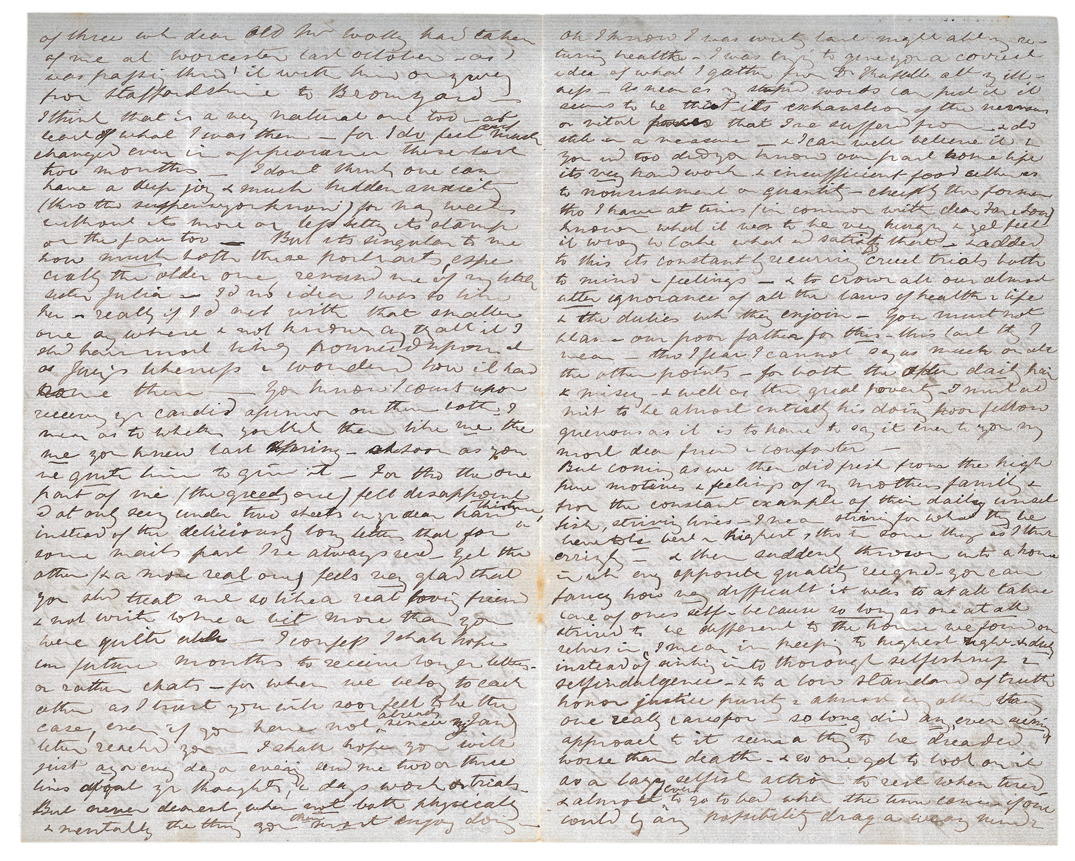 of three wh dear old Mr Wolly had taken
of me at Worcester last October - as I
was passing thro' it with him on my way
from Staffordshire to Bromyard -
I think that is a very natural one too - at
least of what I was then - for I do feel much
changed even in appearance these last
two months - I don't think one can
have a deep joy & much hidden anxiety
(thro the suspense you know) for many weeks
without its more or less setting its stamp
on the face too - But its singular to me
how much both these portraits, espe
cially the older one remind me of my
sister Julia - I'd no idea I was so like
her - really if I'd met with that smaller
one any where & not known any thing of it I
shd have most likely pounced upon it
as Judy's likeness & wondered how it had
come there - You know I count upon
receiving yr candid opinion on them both, I
mean as to whether you feel them like me the
me you knew last Spring - as soon as you
've quite time to give it - For tho the one
part of me (the greedy one) felt disappointe
d at only seeing under two sheets in yr dear
instead of the deliciously long letters that for
some mails past I've always recd - yet the
other (& a more real one) feels very glad that
you shd treat me so like a real loving friend
& not write to me a bit more than you
were quite able - I confess I shall hope
in future months to receive longer letters -
or rather chats - for when we belong to each
other as I trust you will soon feel to be the
case, even if you have not already received my Jany
letter reached you - I shall hope you will
just as every day or evening send me two or three
lines about yr thoughts, & days work or trials -
But never dearest, when not both physically
& mentally the thing you then most enjoy doing -
oh I know I was writing last night about my re-
turning health - I was trying to give you a correct
idea of what I gather from Dr all my ill-
ness - as near as my stupid words can put it it
seems to be that its exhaustion of the nervous
or vital that I've suffered from & do
still in a measure - & I can well believe it &
you wd too did you know our past home life
its very hard work & insufficient food either as
to nourishment or quantity - chiefly the former
tho I have at times (in common with dear Jane)
known what it was to be very hungry & yet feel
it wrong to take what wd satisfy that - & added
to this its constantly recurring cruel trials both
to mind & feelings - & to crown all our almost
utter ignorance of all the laws of health & life
& the duties wh they enjoin - You must not
blame our poor father for this - this last thg I
mean - tho I fear I cannot say as much on
the other points - for both the daily
& misery - & well as the great poverty - I must ad
mit to be almost entirely his doing poor fellow
grievous as it is to have to say it even to you my
most dear friend & comforter -
But coming as we then did fresh from the high
pure motives & feelings of my mothers family &
from the constant example of their daily unsel
fish, striving lives - I mean striving for what they be
lieved to be best & highest, tho in some things as I think
erringly - & then suddenly thrown into a home
in wh every opposite quality reigned you can
fancy how very difficult it was to at all take
care of ones self - because so long as one at all
strived to be different to the home we found our
selves in, I mean in keeping to highest right & duty
instead of sinking in to thorough selfishness &
self-indulgence - & to a low standard of truth
honor justice purity & almost every other thing
one really cares for - so long did any even seeming
approach to it seem a thg to be dreaded
worse than death - & so one got to look on it
as a lazy selfish action to rest when tired
& almost even to go to bed when the time came if one
could by any possibility drag a weary mind &